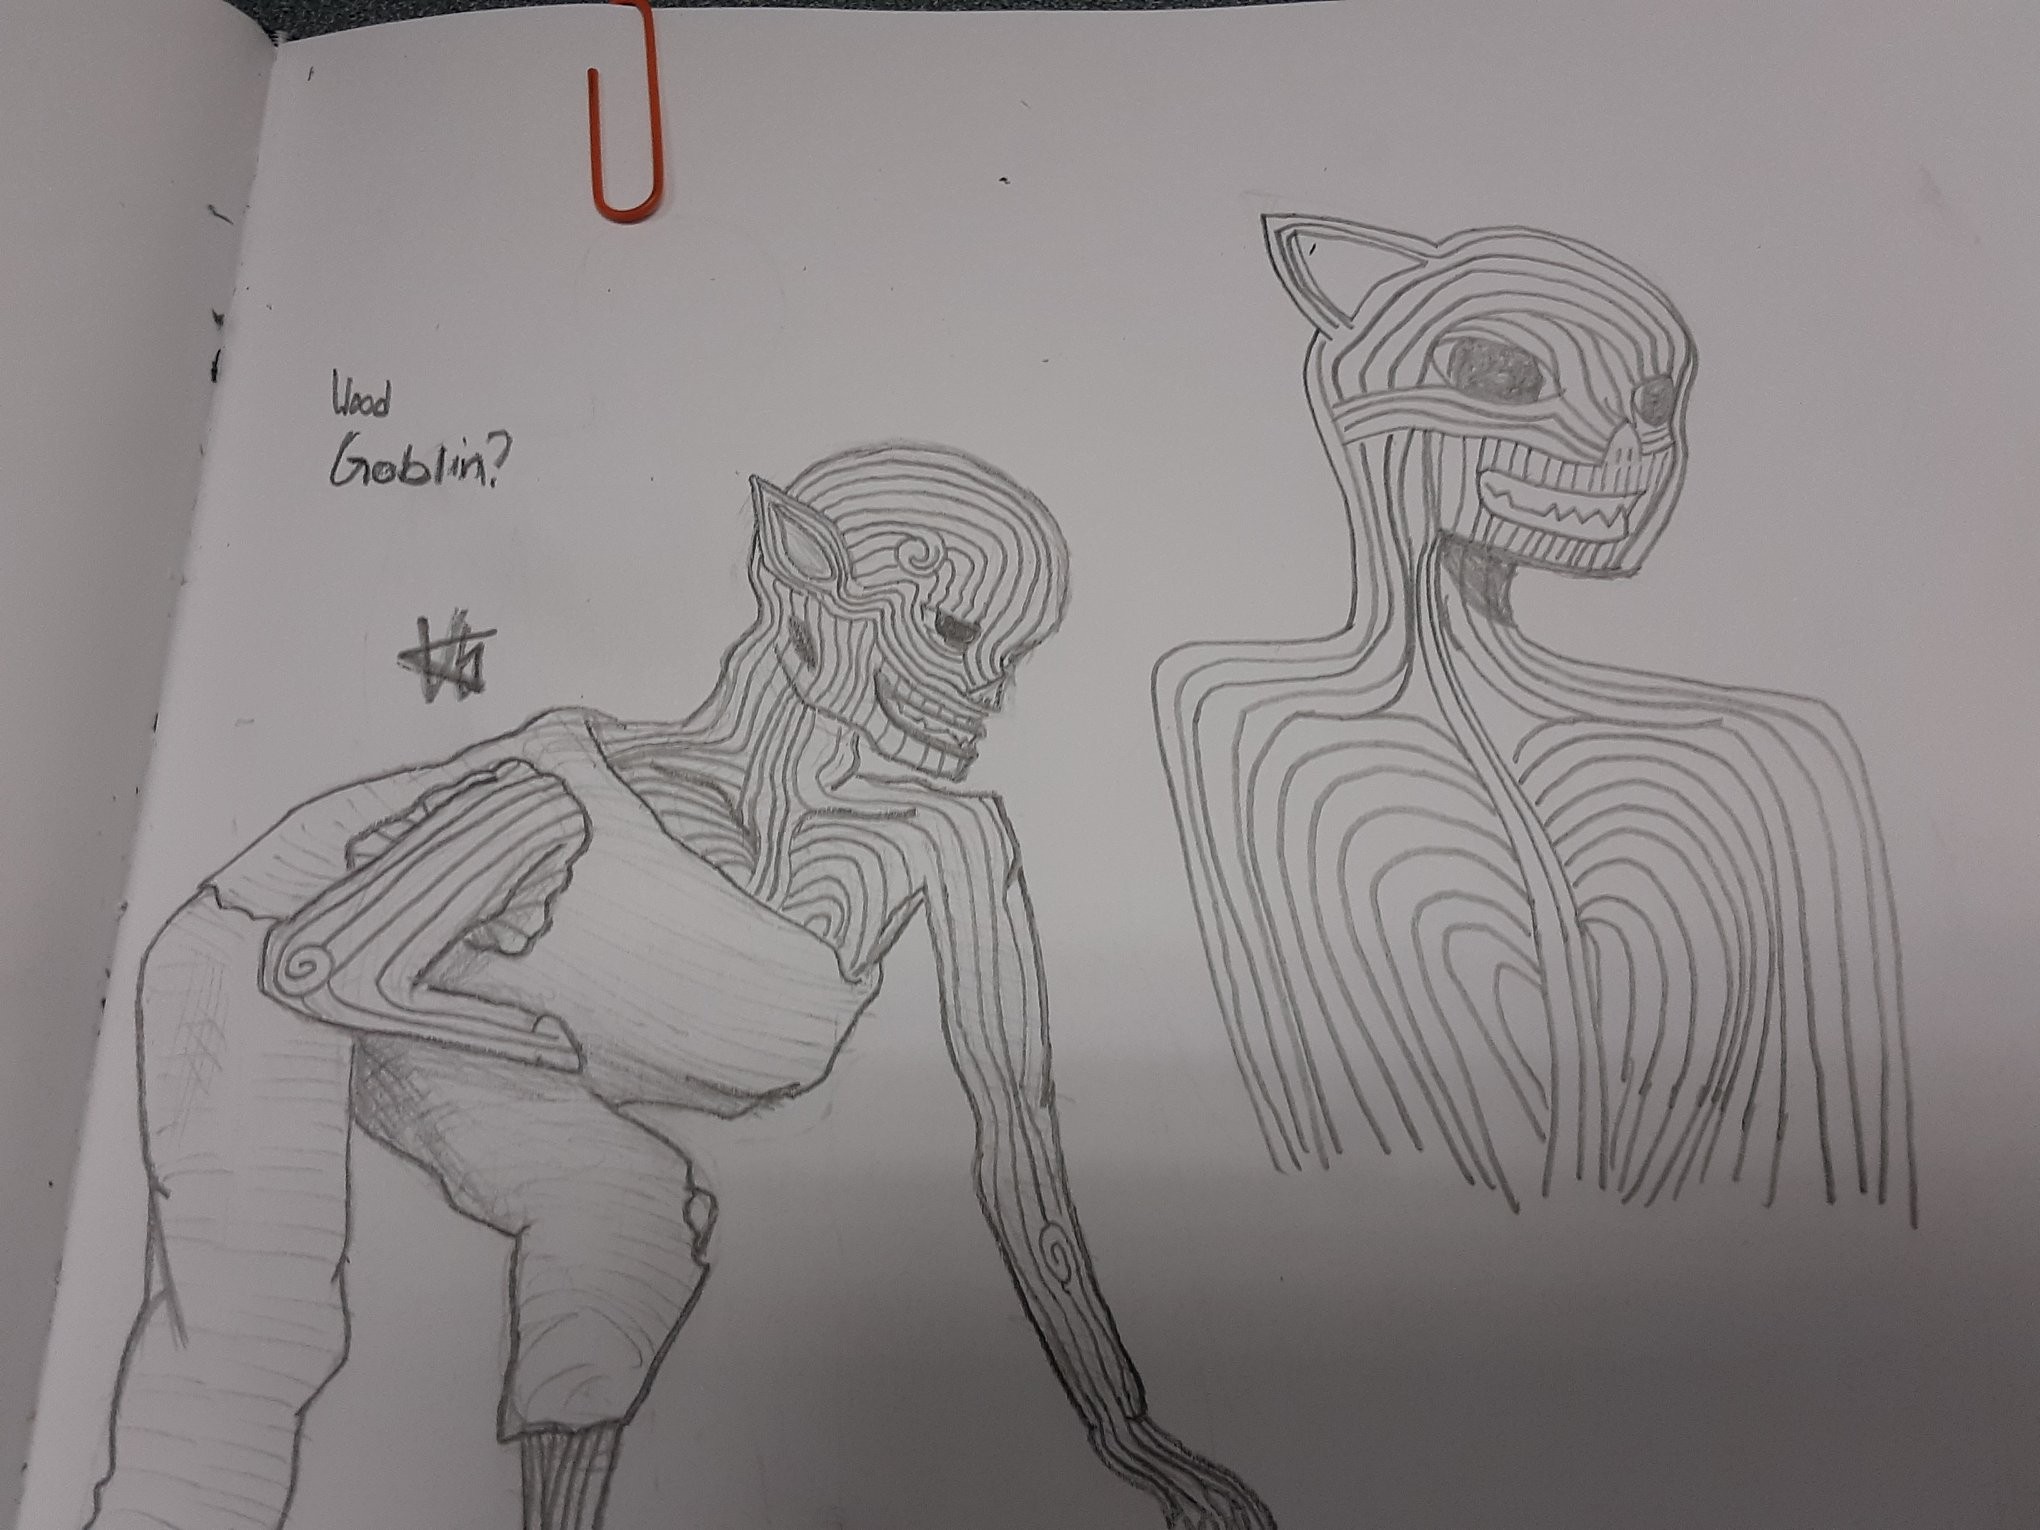 Wood
Goblin?